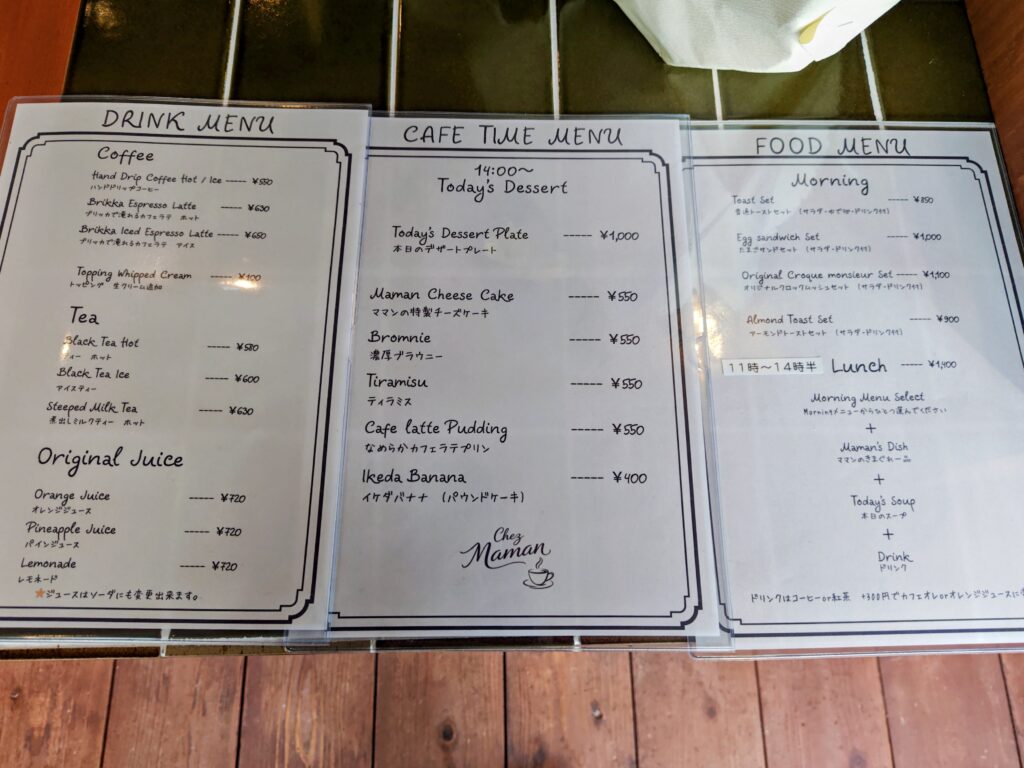 DRINK MENU
Coffee
Hand Drip Coffee Hot / Ice ----- ¥550
ハンドドリップコーヒー
Brikka Espresso Latte ----- ¥630
ブリッカで淹れるカフェラテ ホット
Brikka Iced Espresso Latte ----- ¥650
ブリッカで淹れるカフェラテ アイス
Topping Whipped Cream ----- ¥100
トッピング 生クリーム追加
Tea
Black Tea Hot ----- ¥580
ティー ホット
Black Tea Ice ----- ¥600
アイスティー
Steeped Milk Tea ----- ¥630
煮出しミルクティー ホット
Original Juice
Orange Juice ----- ¥720
オレンジジュース
Pineapple Juice ----- ¥720
パインジュース
Lemonade ----- ¥720
レモネード
★ジュースはソーダにも変更出来ます。
CAFE TIME MENU
14:00~
Today's Dessert
Today's Dessert Plate ----- ¥1,000
本日のデザートプレート
Maman Cheese Cake ----- ¥550
ママンの特製チーズケーキ
Bromnie ----- ¥550
濃厚ブラウニー
Tiramisu ----- ¥550
ティラミス
Cafe latte Pudding ----- ¥550
なめらかカフェラテプリン
Ikeda Banana ----- ¥400
イケダバナナ (パウンドケーキ)
Chez
Maman
FOOD MENU
Morning
Toast Set ----- ¥850
普通トーストセット (サラダ・ゆで卵・ドリンク付)
Egg sandwich Set ----- ¥1,000
たまごサンドセット (サラダ・ドリンク付)
Original Croque monsieur Set ----- ¥1,100
オリジナルクロックムッシュセット (サラダ・ドリンク付)
Almond Toast Set ----- ¥900
アーモンドトーストセット (サラダ・ドリンク付)
11時～14時半 Lunch ----- ¥1,400
Morning Menu Select
Morningメニューからひとつ選んでください
+
Maman's Dish
ママンのきまぐれ一品
+
Today's Soup
本日のスープ
+
Drink
ドリンク
ドリンクはコーヒーor紅茶 +300円でカフェオレorオレンジジュースに